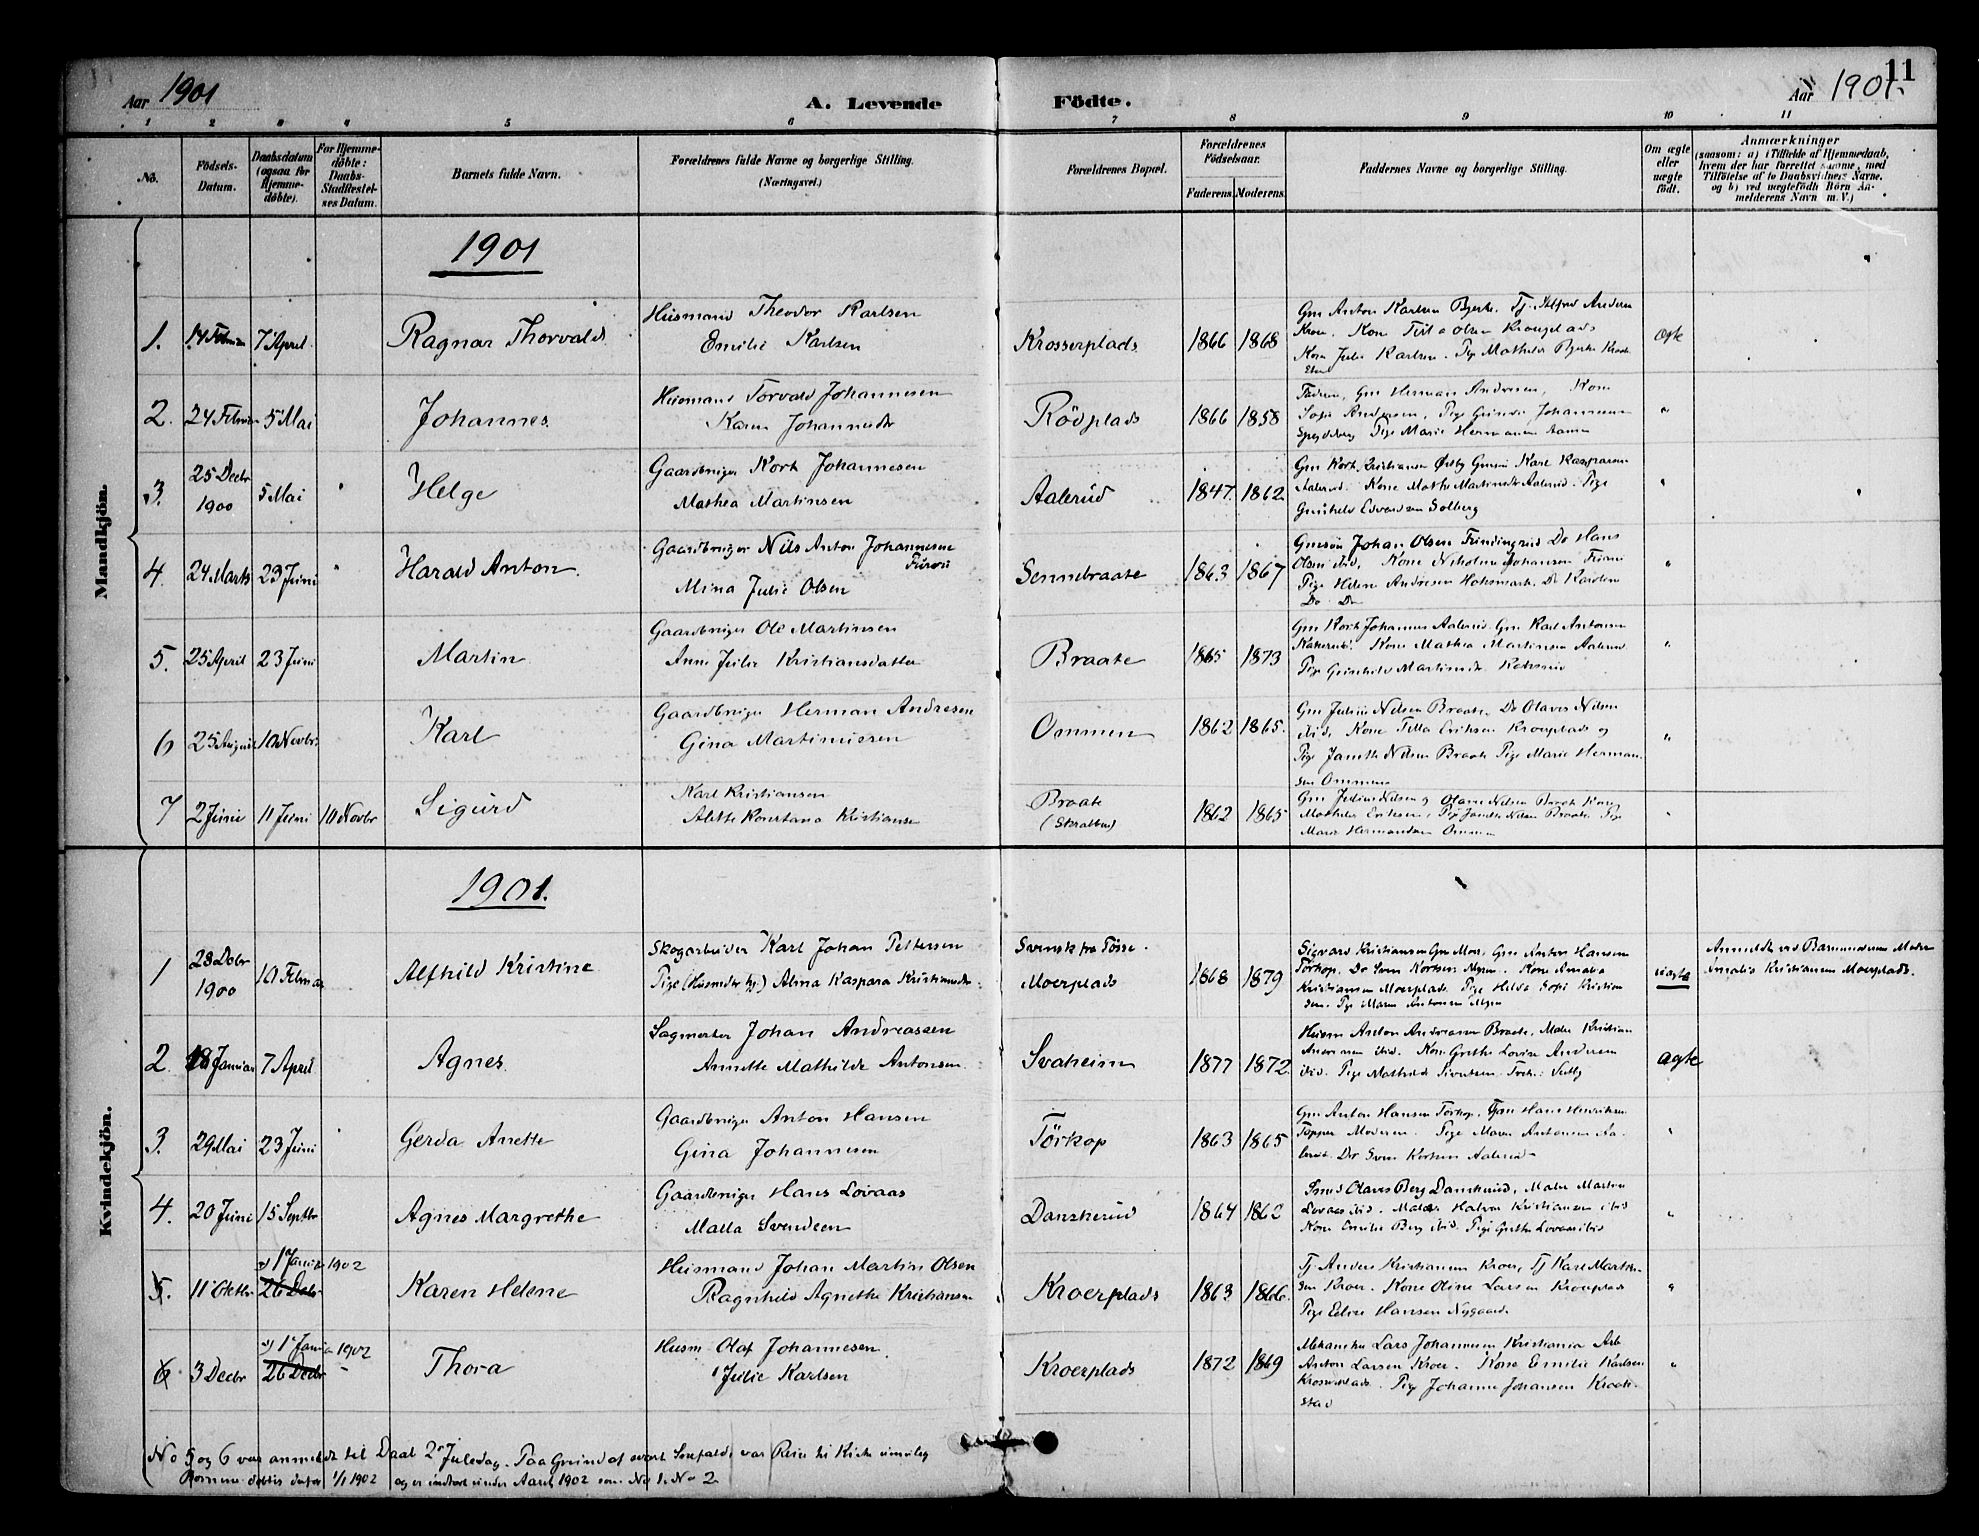 Aar 1901
A. Levende Födte.
Aar 1901.
11
1 2 3 4 5 6 7 8 9 10 11
No.
Födsels-Datum.
Daabsdatum (ogsaa for Hjemmedöbte).
For Hjemmedöbte: Daabs-Stadfæstelses Datum.
Barnets fulde Navn.
Forældrenes fulde Navne og borgerlige Stilling.
(Næringsvei.)
Forældrenes Bopæl.
Forældrenes Födselsaar.
Faderens. Moderens.
Faddernes Navne og borgerlige Stilling.
Om ægte eller uægte födt.
Anmærkninger
(saasom: a) i Tilfælde af Hjemmedaab,
hvem der har forrettet samme, med
Tilföielse af to Daabsvidners Navne,
og b) ved uægtefödte Börn Anmelderens Navn m. V.)
Mandkjön.
1901
1. 14 Februar 7 April Ragnar Thorvald
Husmand Theodor Karlsen
Emilie Karlsen
Krosserplads 1866 1868
Gm Anton Karlsen Bjerke.
Kone Julie Karlsen. Pige Mathilde Bjerke
ægte
2. 24 Februar 5 Mai Johannes
Husmand Torvald Johannesen
Karen Johannesdtr
Rödplads 1866 1858
Fadren, Gm Herman Andresen, Kone
Sofie Andersen, Pige Johannesen
Spydeberg Pige Marie Hermansen
"
3. 25 Decbr 1900 5 Mai Helge
Gaardbruger Kort Johannesen
Mathea Martinsen
Aalerud 1847. 1862.
Gm Kort Kristiansen Karl Kaspersen
Aalerud. Kone Mathe Martinsdtr Aalerud. Pige
Gunhild Edvardsen Solberg
"
4. 24 Marts 23 Juni Harald Anton.
Gaardbruger Nils Anton Johannesen
Mina Julie Olsen
Sennebraate 1863 1867
Johan Olsen Do Hans
Olsen ibid, Kone Johansen
Pige Helene Andresen Do Karoline
Do Do
"
5. 25 April 23 Juni Martin
Gaardbruger Ole Martinsen
Anne Julie Kristiansdatter
Braate 1865 1873
Gm Kort Johannes Aalerud. Gm Karl Antonsen
Kone Mathea Martinsen Aalerud
Pige Gunhild Martinsdtr
"
6 25 August 10 Novbr. Karl
Gaardbruger Herman Andresen
Gina Martiniusen
Ommen 1862 1865.
Gm Julius Nilsen Braate. Do Olaves Nilsen
ibid, Kone Tilla Eriksen Kroerplads og
Pige Janette Nilsen Braate Pige Marie Herman-
sen Ommen
"
7 2 Juni 11 Juni 10 Novbr Sigurd
Karl Kristiansen
Alette Konstana Kristiansen
Braate
1862 1865
Gm Julius Nilsen og Olaves Nilsen Braate Kone
Mathilde Eriksen, Pige Janette Nilsen Braate Pige
Marie Hermansen Ommen
"
Kvindekjön.
1901.
1 28 Debr 1900 10 Februar Alfhild Kristine
Skogarbeider Karl Johan Pettersen
Pige Alma Kaspara Kristiansdtr
Svensk fra Tösse.
Moerplads 1868 1879
Sigvard Kristiansen Gm Moer, Gm Anton Hansen
Törkop. Do Sven Kortsen Kone Amalie
Kristiansen Moerplads Pige Hilda Sofie Kristian
sen. Pige Maren Antonsen
uægte
Anmeldt ved Barnets Moder
Amalie Kristiansen Moerplads.
2. 18 Januar 7 April Agnes.
Sagmester Johan Andreassen
Annette Mathilde Antonsen
Svaheim 1877 1872.
Husm Anton Andreasen Braate, Maler Kristian
Andresen ibid. Kone Grethe Lovise Andersen
ibid. Pige Mathilde
ægte
3. 29 Mai 23 Juni Gerda Anette
Gaardbruger Anton Hansen
Gina Johannesen
Törkop 1863 1865
Gm Anton Hansen Törkop. Gm Hans Henriksen
Topper Moderen. Pige Maren Antonsen Aa-
lerud. Do Sven Kortsen Aalerud
"
4. 20 Juni 15 Septbr Agnes Margrethe
Gaardbruger Hans Lovaas
Malla Svendsen
Danskerud 1864 1862
Smed Olaves Berg Danskerud, Maler Martin
Lovaas ibid. Maler Halvor Kristiansen ibid
Kone Emilie Berg ibid. Pige Grethe Lovaas ibid
"
5. 11 Oktbr 1 Januar 1902 26 Debr Karen Helene
Husmand Johan Martin Olsen
Ragnhild Agnethe Kristiansen
Kroerplads 1863 1866.
Tj Anders Kristiansen Kroer, Tj Karl Martin-
sen Kroer. Kone Oline Larsen Kroerplads
Pige Edvie Hansen Nygaard
"
6 3 Decbr 1 Januar 1902 26 Decbr Thora
Husm Olaf Johannesen.
Julie Karlsen
Kroerplads 1872 1869
Mekaniker Lars Johannesen Kristiania Arb
Anton Larsen Kroer. Kone Emilie Karlsen
Krosserplads. Pige Johanne Johansen Kroer-
stad
"
No 5 og 6 var anmeldt til Daab 2den Juledag. Paa Grund af svært Snefald var Reise til Kirke umulig
Börnene döbtes derfor 1/1 1902 og er indført under Aaret 1902 som No 1. No 2